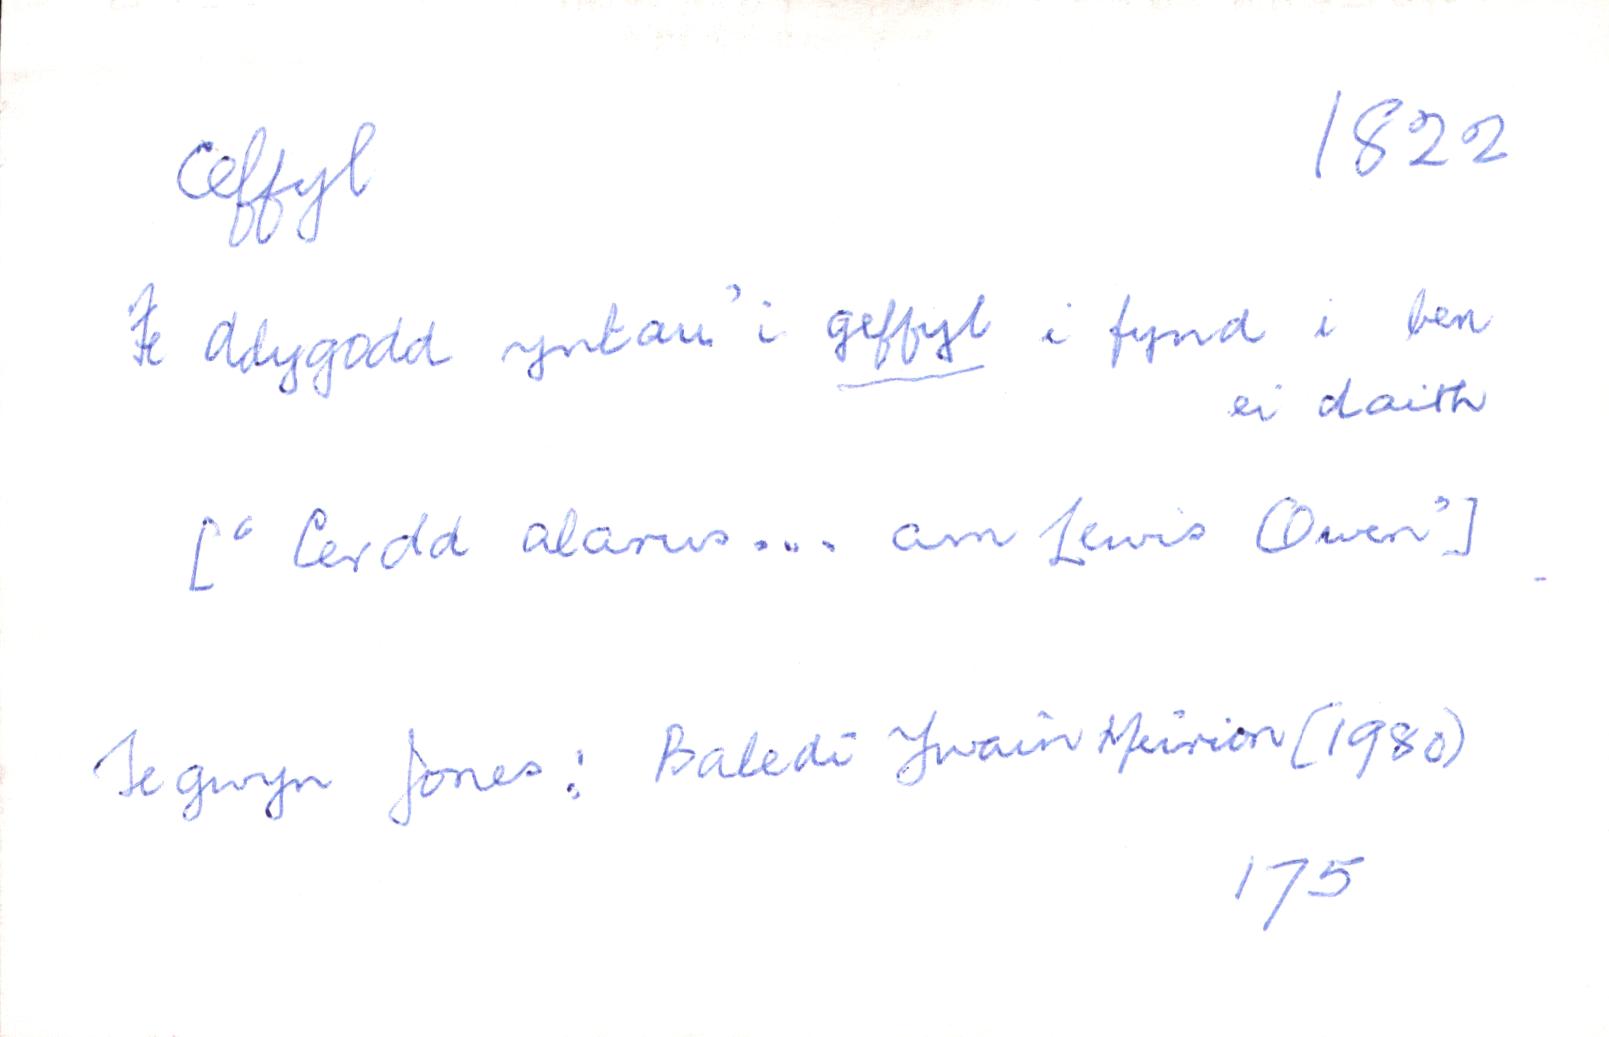 Ceffyl 1822
Fe ddygodd yntau'i geffyl i fynd i ben
ei daith
["Cerdd alarus... am Lewis Owen"]
Tegwyn Jones: Baledi Ywain Meirion (1980)
175